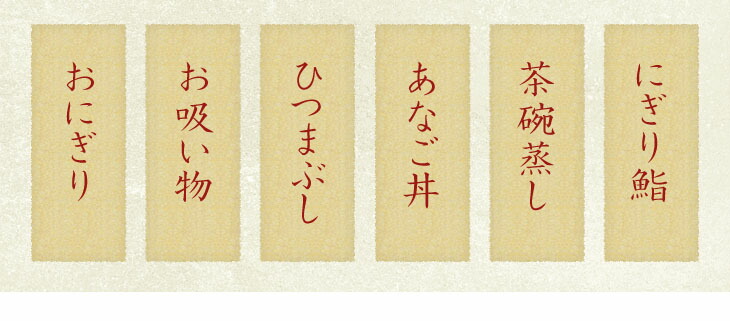 にぎり鮨
茶碗蒸し
あなご丼
ひつまぶし
お吸い物
おにぎり